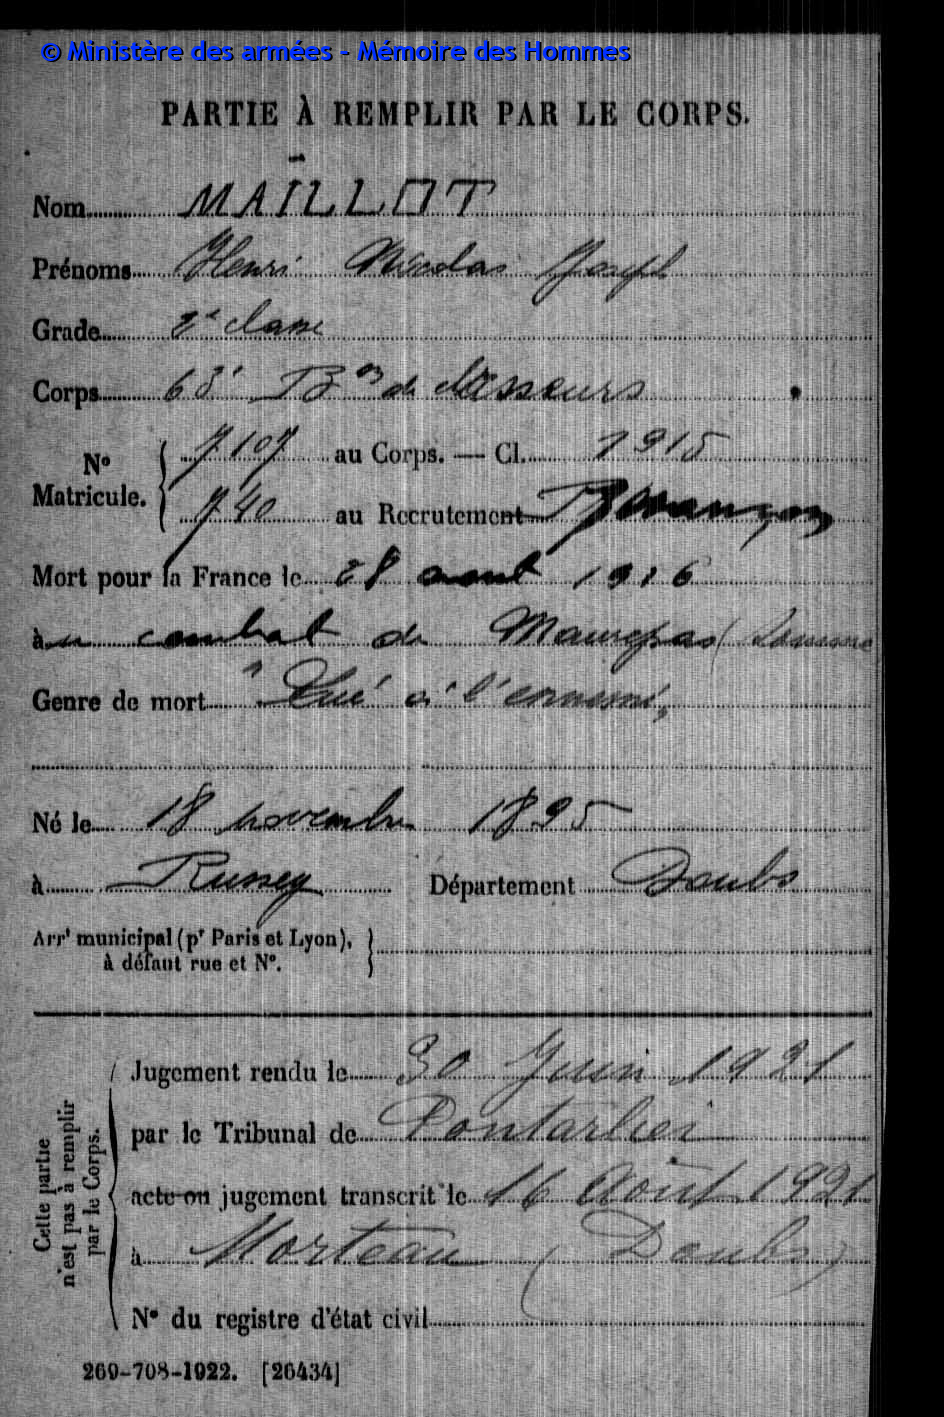 © Ministère des armées - Mémoire des Hommes
PARTIE À REMPLIR PAR LE CORPS.
Nom MAILLOT
Prénoms Henri Nicolas Joseph
Grade 2e classe
Corps 63e Bon de Chasseurs
No Matricule. { 7107 au Corps. — Cl. 1915
740 au Recrutement Besançon
Mort pour la France le 28 aout 1916
au combat de Maurepas (Somme
Genre de mort "Tué à l'ennemi"
Né le 18 novembre 1895
à Russey Département Doubs
Arrt municipal (pr Paris et Lyon), à défaut rue et No. }
Cette partie n'est pas à remplir par le Corps.
Jugement rendu le 30 Juin 1921
par le Tribunal de Pontarlier
acte ou jugement transcrit le 16 Août 1921
à Morteau (Doubs)
No du registre d'état civil
269-708-1922. [26434]